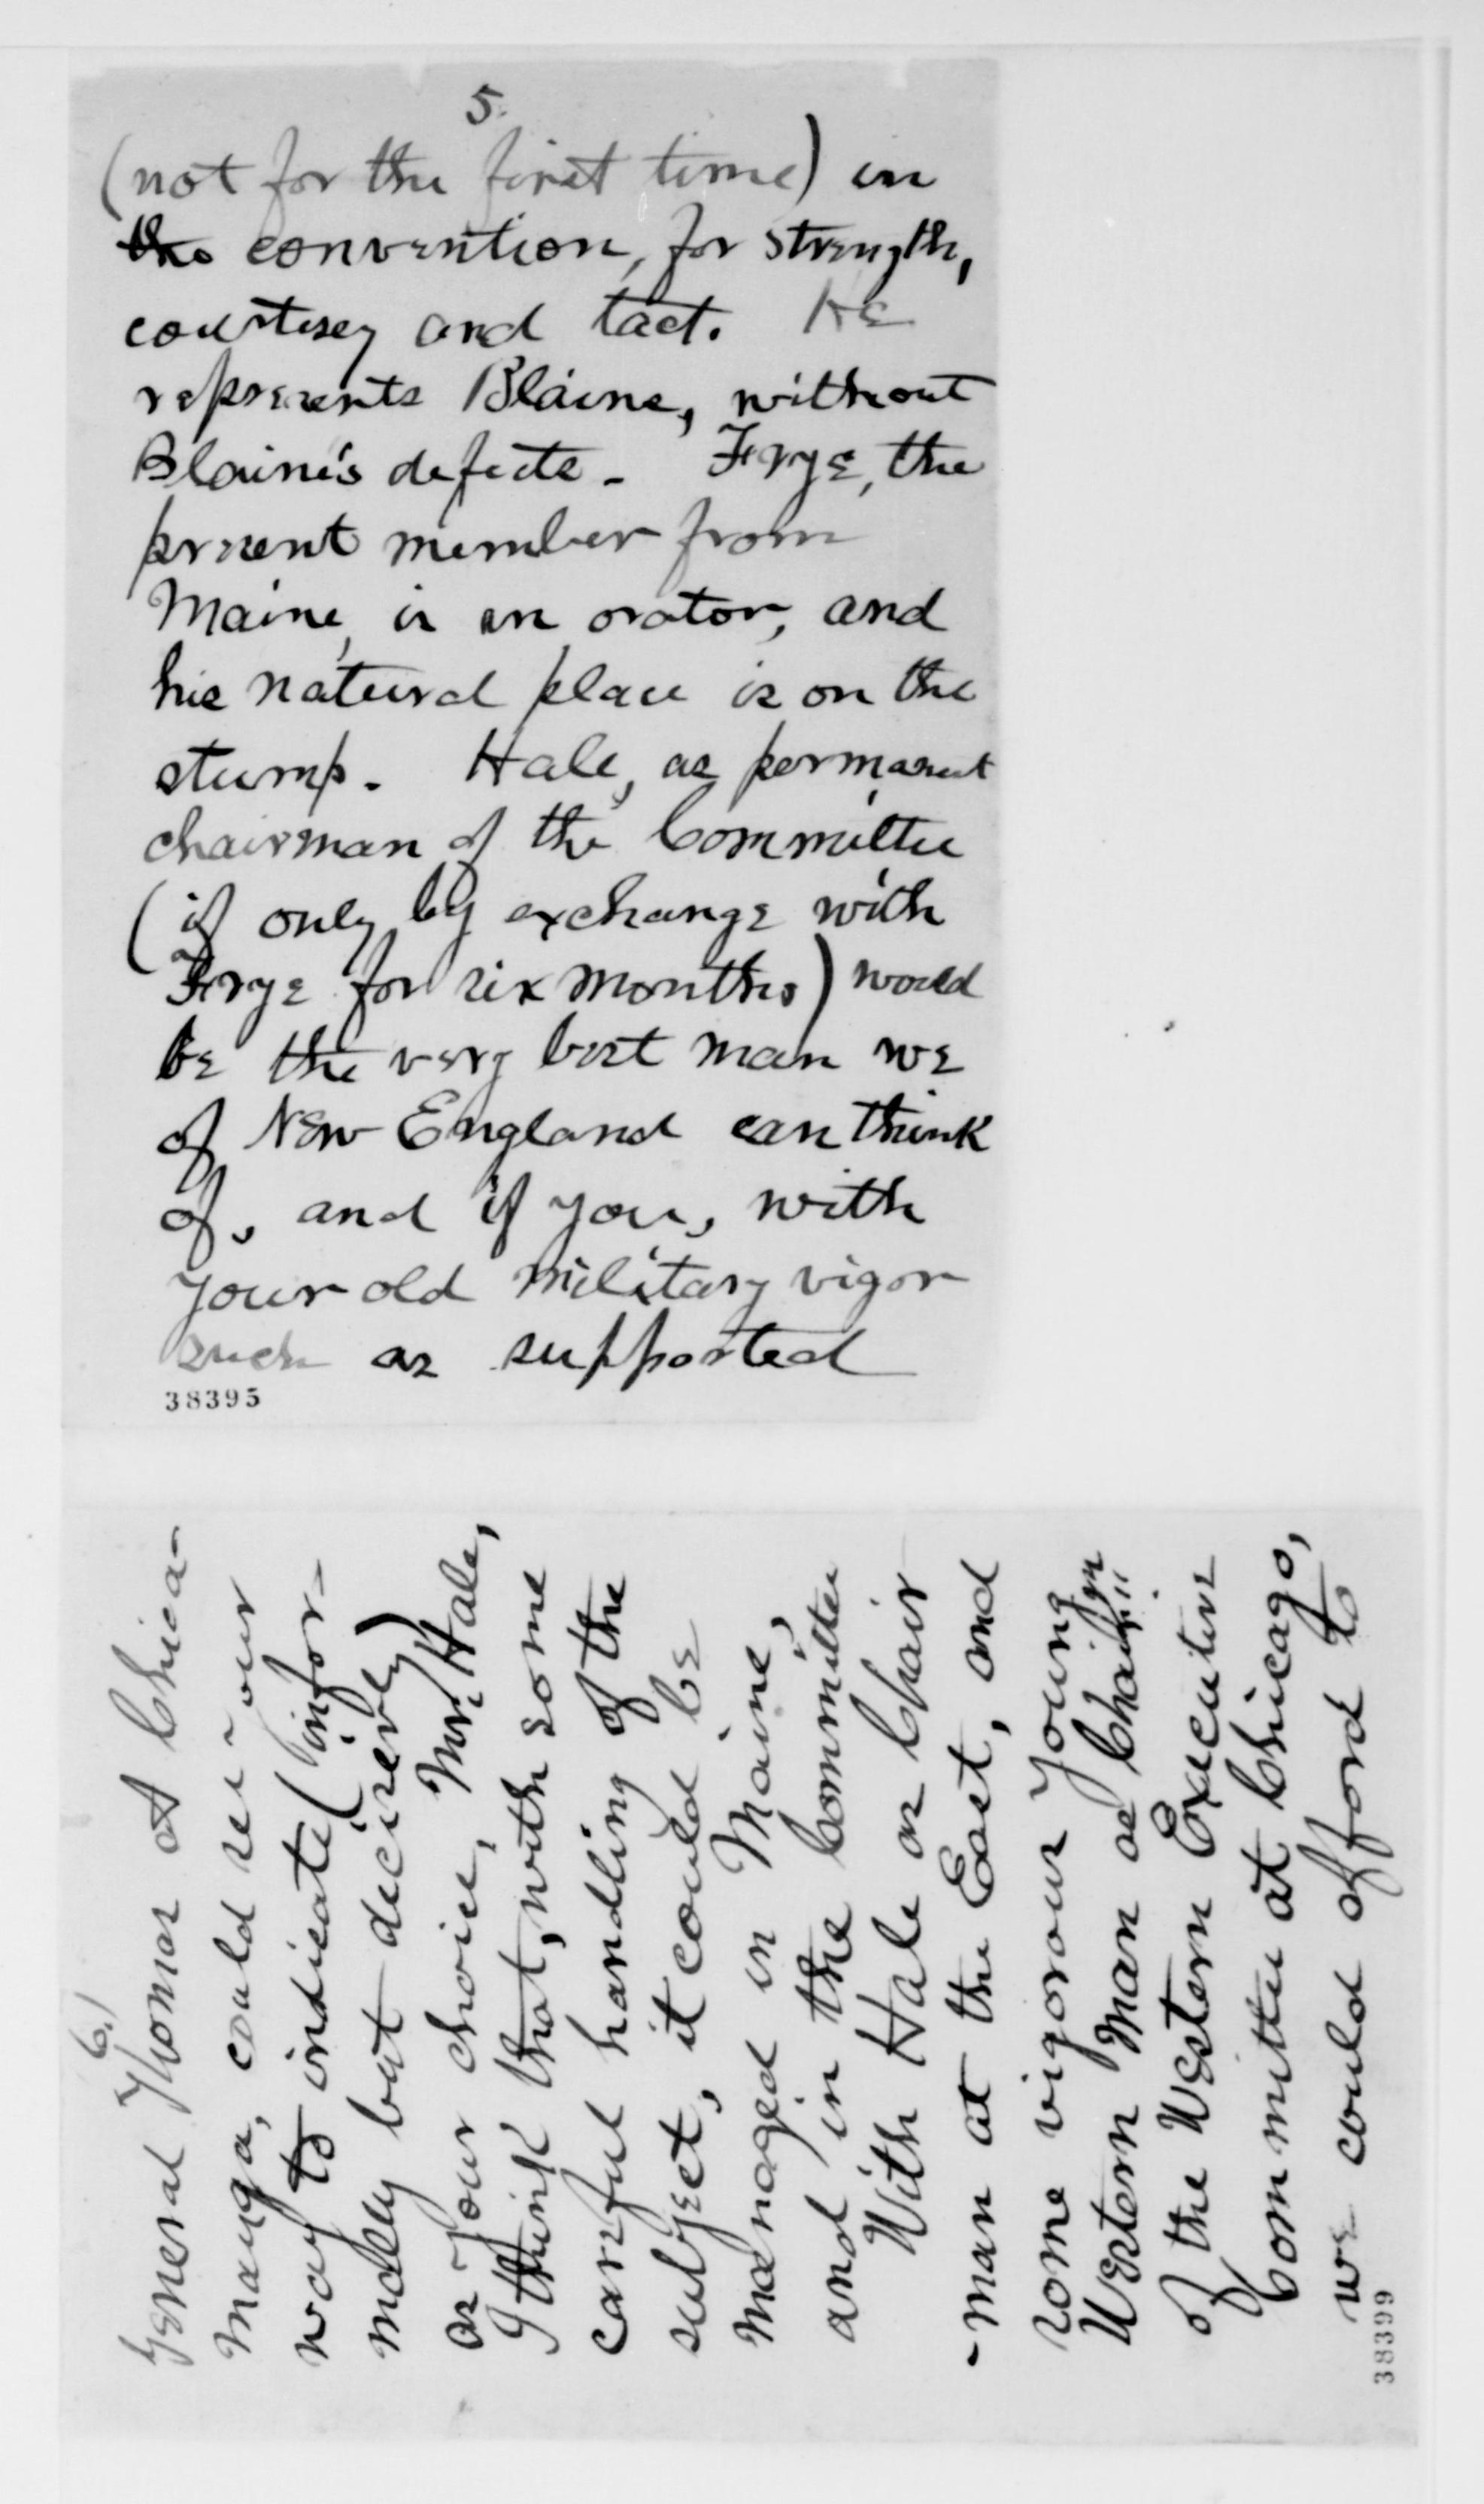 5.
(not for the first time) in
the convention, for strength,
courtesy and tact. He
represents Blaine, without
Blaine's defects. Frye, the
present member from
Maine, is an orator, and
his natural place is on the
stump. Hale, as permanent
chairman of the Committee
(if only by exchange with
Frye for six months) would
be the very best man we
of New England can think
of, and if you, with
your old military vigor
such as supported
38395
6.
General Thomas at Chica-
mauga, could see your
way to indicate (infor-
mally but decisively)
as your choice, Mr. Hale,
I think that, with some
careful handling of the
subject, it could be
managed in Maine,
and in the Committee
With Hale as Chair
-man at the East, and
some vigorous young
Western man as Chair
of the Western Executive
Committee at Chicago,
we could afford to
38399